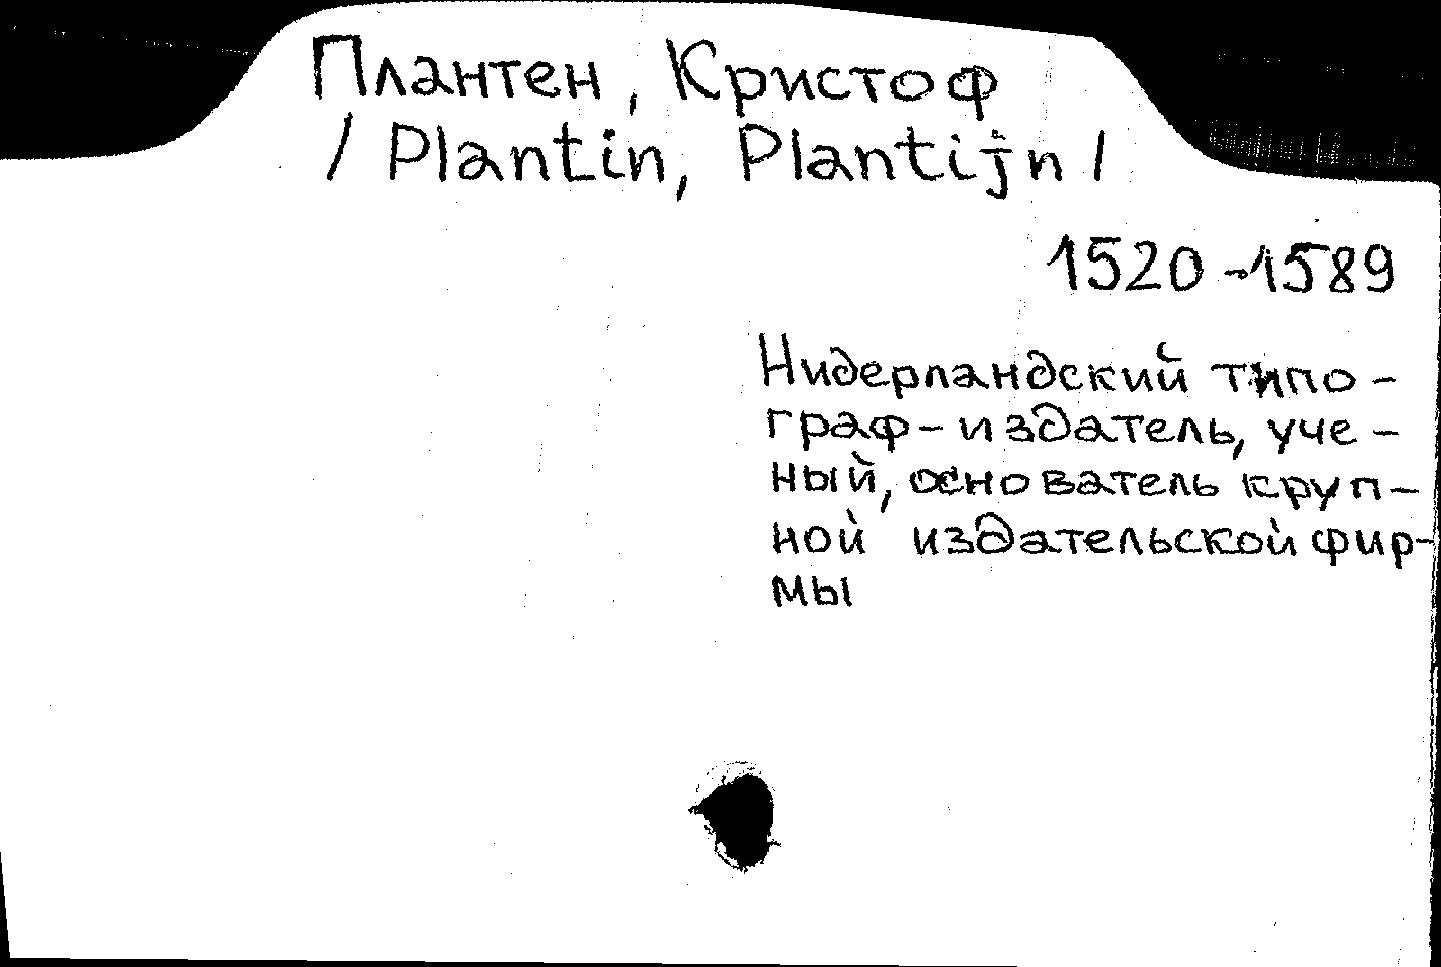 Плантен, Кристоф
/ Plantin, Plantijn /
1520-1589
Нидерландский типо-
граф-издатель, уче-
ный, основатель круп-
ной издательской фир-
мы